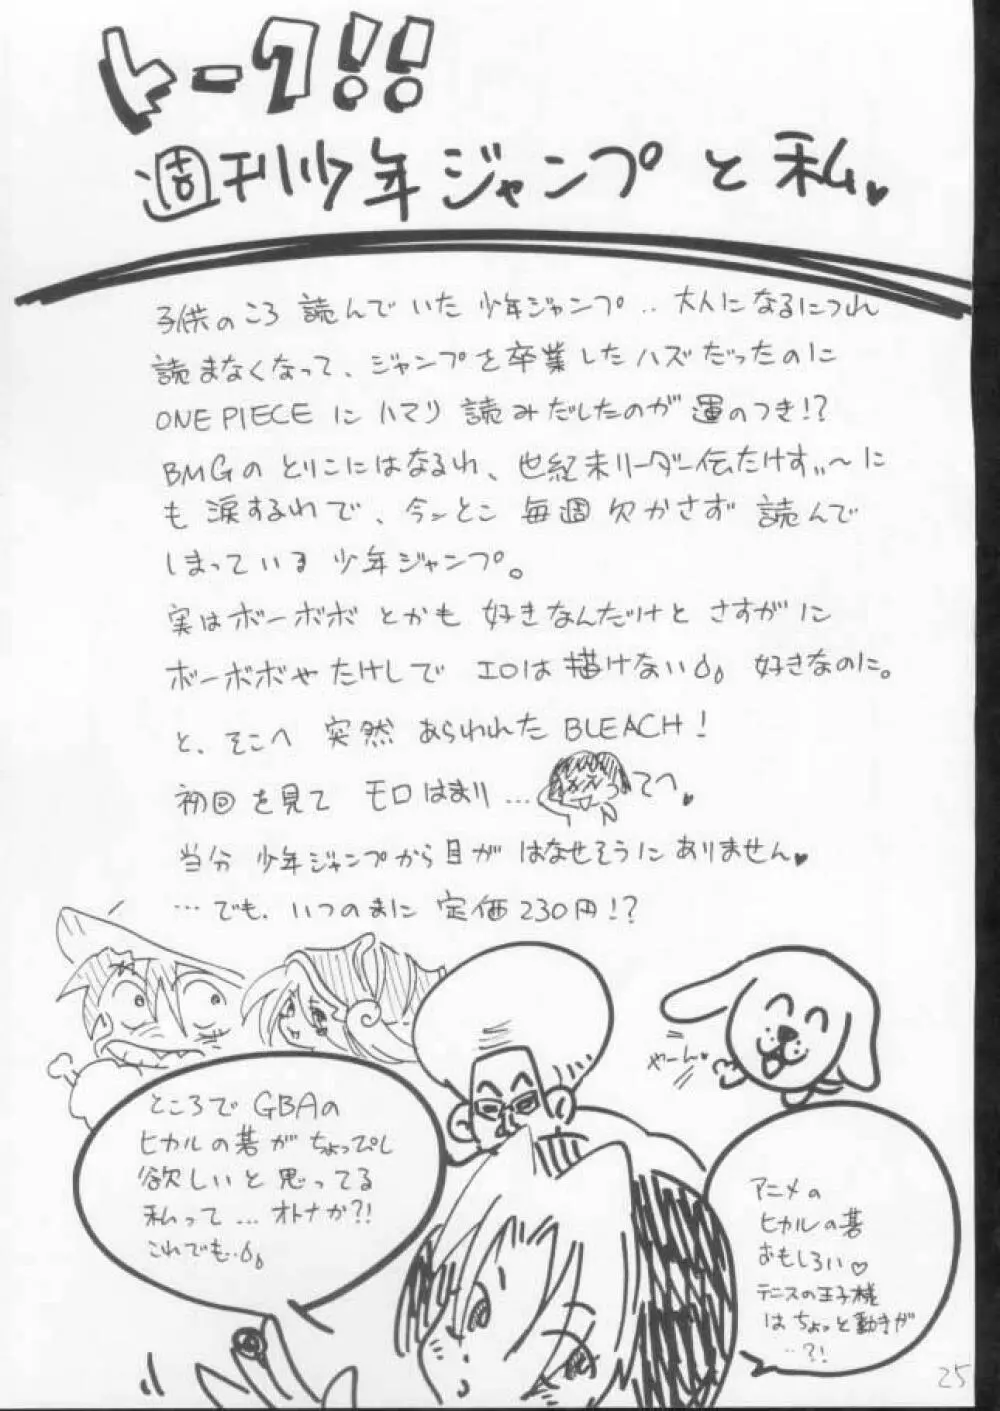 トーク!!
週刊少年ジャンプと私♥
子供のころ 読んでいた 少年ジャンプ‥大人になるにつれ
読まなくなって、ジャンプを卒業したハズだったのに
ONE PIECEにハマり 読みだしたのが 運のつき!?
BMGの とりこにはなるわ、世紀末リーダー伝たけすぃ〜に
も 涙するわで、今んとこ 毎週 欠かさず 読んで
しまっている 少年ジャンプ。
実はボーボボ とかも 好きなんだけど さすがに
ボーボボや たけしで エロは描けない 好きなのに。
と、そこへ 突然 あらわれた BLEACH!
初回を見て モロはまり… てへ♥
当分 少年ジャンプから 目が はなせそうに ありません♥
…でも、いつのまに 定価230円!?
やーん♥
ところで GBAの
ヒカルの碁が ちょっぴし
欲しいと 思ってる
私って … オトナか?!
これでも‥
アニメの
ヒカルの碁
おもしろい♡
テニスの王子様
は ちょっと動きが
‥?!
25